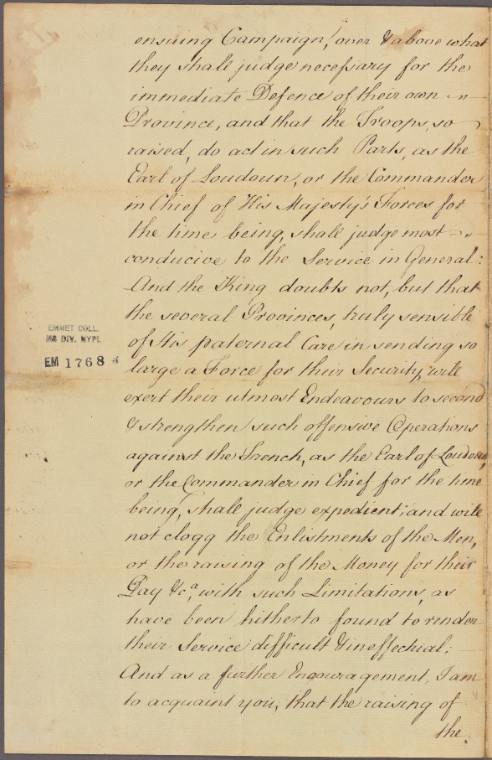 ensuing Campaign, over & above what
they shall judge necessary for the
immediate Defence of their own
Province, and that the Troops, so
raised, do act in such Parts, as the
Earl of Loudoun, or the Commander
in Chief of His Majesty's Forces for
the time being, shall judge most
conducive to the Service in General:
And the King doubts not, but that
the several Provinces, truly sensible
of His paternal Care in sending so
large a Force for their Security, will
exert their utmost Endeavours to second
& strengthen such offensive Operations
against the French, as the Earl of Loudoun,
or the Commander in Chief for the time
being, shall judge expedient; and will
not clogg the Enlistments of the Men,
or the raising of the Money for their
Pay &ca, with such Limitations, as
have been hitherto found to render
their Service difficult & ineffectual:
And as a further Encouragement, I am
to acquaint you, that the raising of
the
EMMET COLL.
MS DIV. NYPL
EM 1768